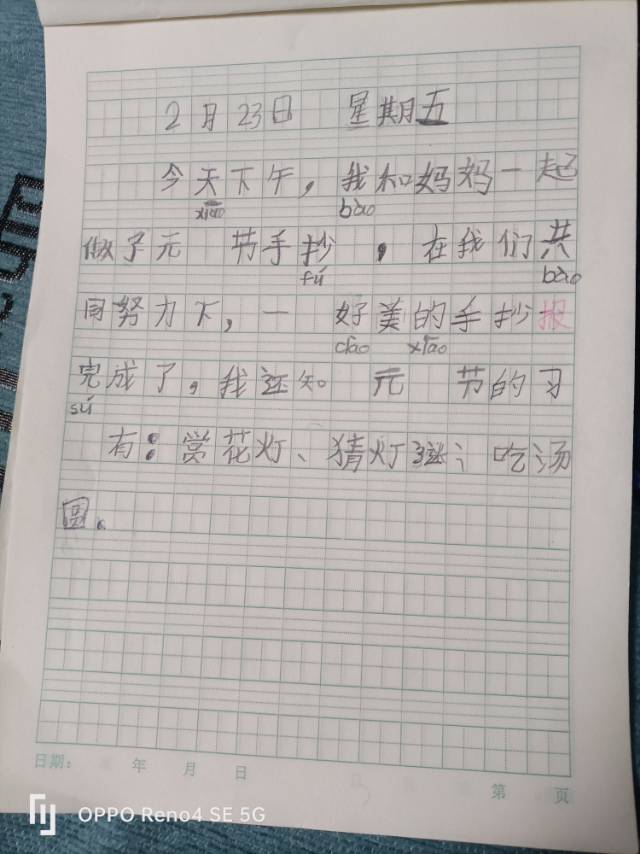 2月23日 星期五
今天下午，我和妈妈一起
xiāo bào
做了元 节手抄 ，在我们共
fú bào
同努力下，一 好美的手抄报
dào xiāo
完成了，我还知 元 节的习
sú
有：赏花灯、猜灯谜、吃汤
圆。
日期： 年 月 日
第 页
OPPO Reno4 SE 5G